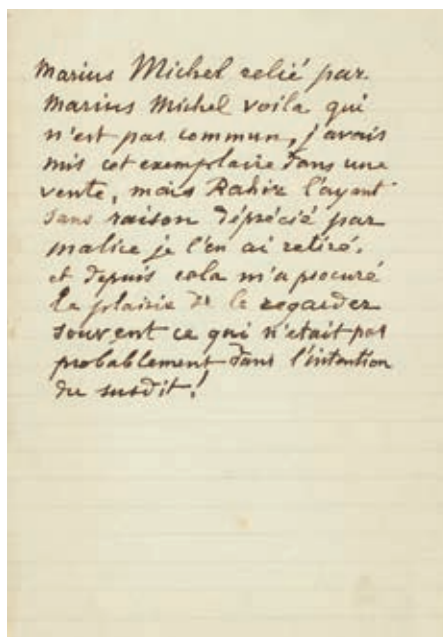 Marius Michel relié par
Marius Michel voila qui
n'est pas commun, j'avais
mis cet exemplaire dans une
vente, mais Rahir l'ayant
sans raison déprécié par
malice je l'en ai retiré.
et depuis cela m'a procuré
le plaisir de le regarder
souvent ce qui n'etait pas
probablement dans l'intention
du susdit!